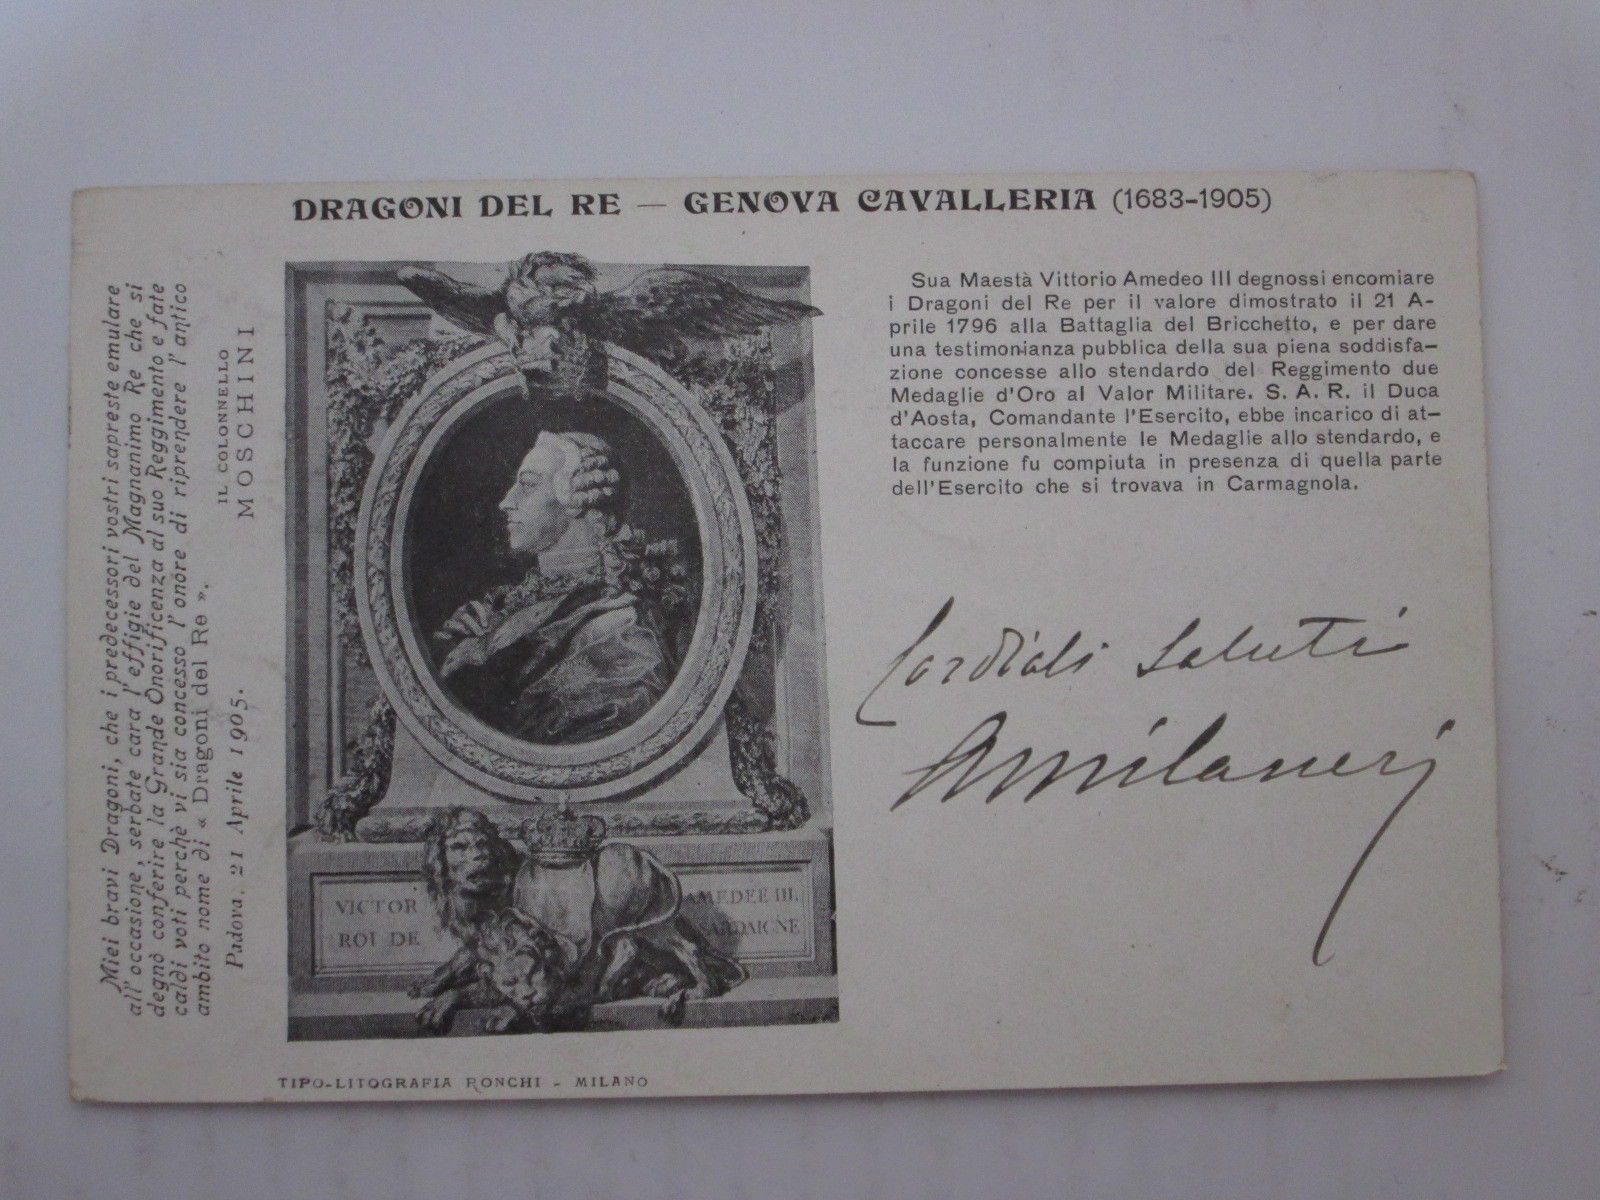 DRAGONI DEL RE — GENOVA CAVALLERIA (1683-1905)
Miei bravi Dragoni, che i predecessori vostri sapreste emulare
all'occasione, serbate cara l'effigie del Magnanimo Re che si
degnò conferire la Grande Onorificenza al suo Reggimento e fate
caldi voti perchè vi sia concesso l'onore di riprendere l'antico
ambito nome di « Dragoni del Re ».
IL COLONNELLO
MOSCHINI
Padova, 21 Aprile 1905.
VICTOR AMEDÉE III.
ROI DE SARDAIGNE
TIPO-LITOGRAFIA RONCHI - MILANO
Sua Maestà Vittorio Amedeo III degnossi encomiare
i Dragoni del Re per il valore dimostrato il 21 A-
prile 1796 alla Battaglia del Bricchetto, e per dare
una testimonianza pubblica della sua piena soddisfa-
zione concesse allo stendardo del Reggimento due
Medaglie d'Oro al Valor Militare. S. A. R. il Duca
d'Aosta, Comandante l'Esercito, ebbe incarico di at-
taccare personalmente le Medaglie allo stendardo, e
la funzione fu compiuta in presenza di quella parte
dell'Esercito che si trovava in Carmagnola.
Cordiali saluti